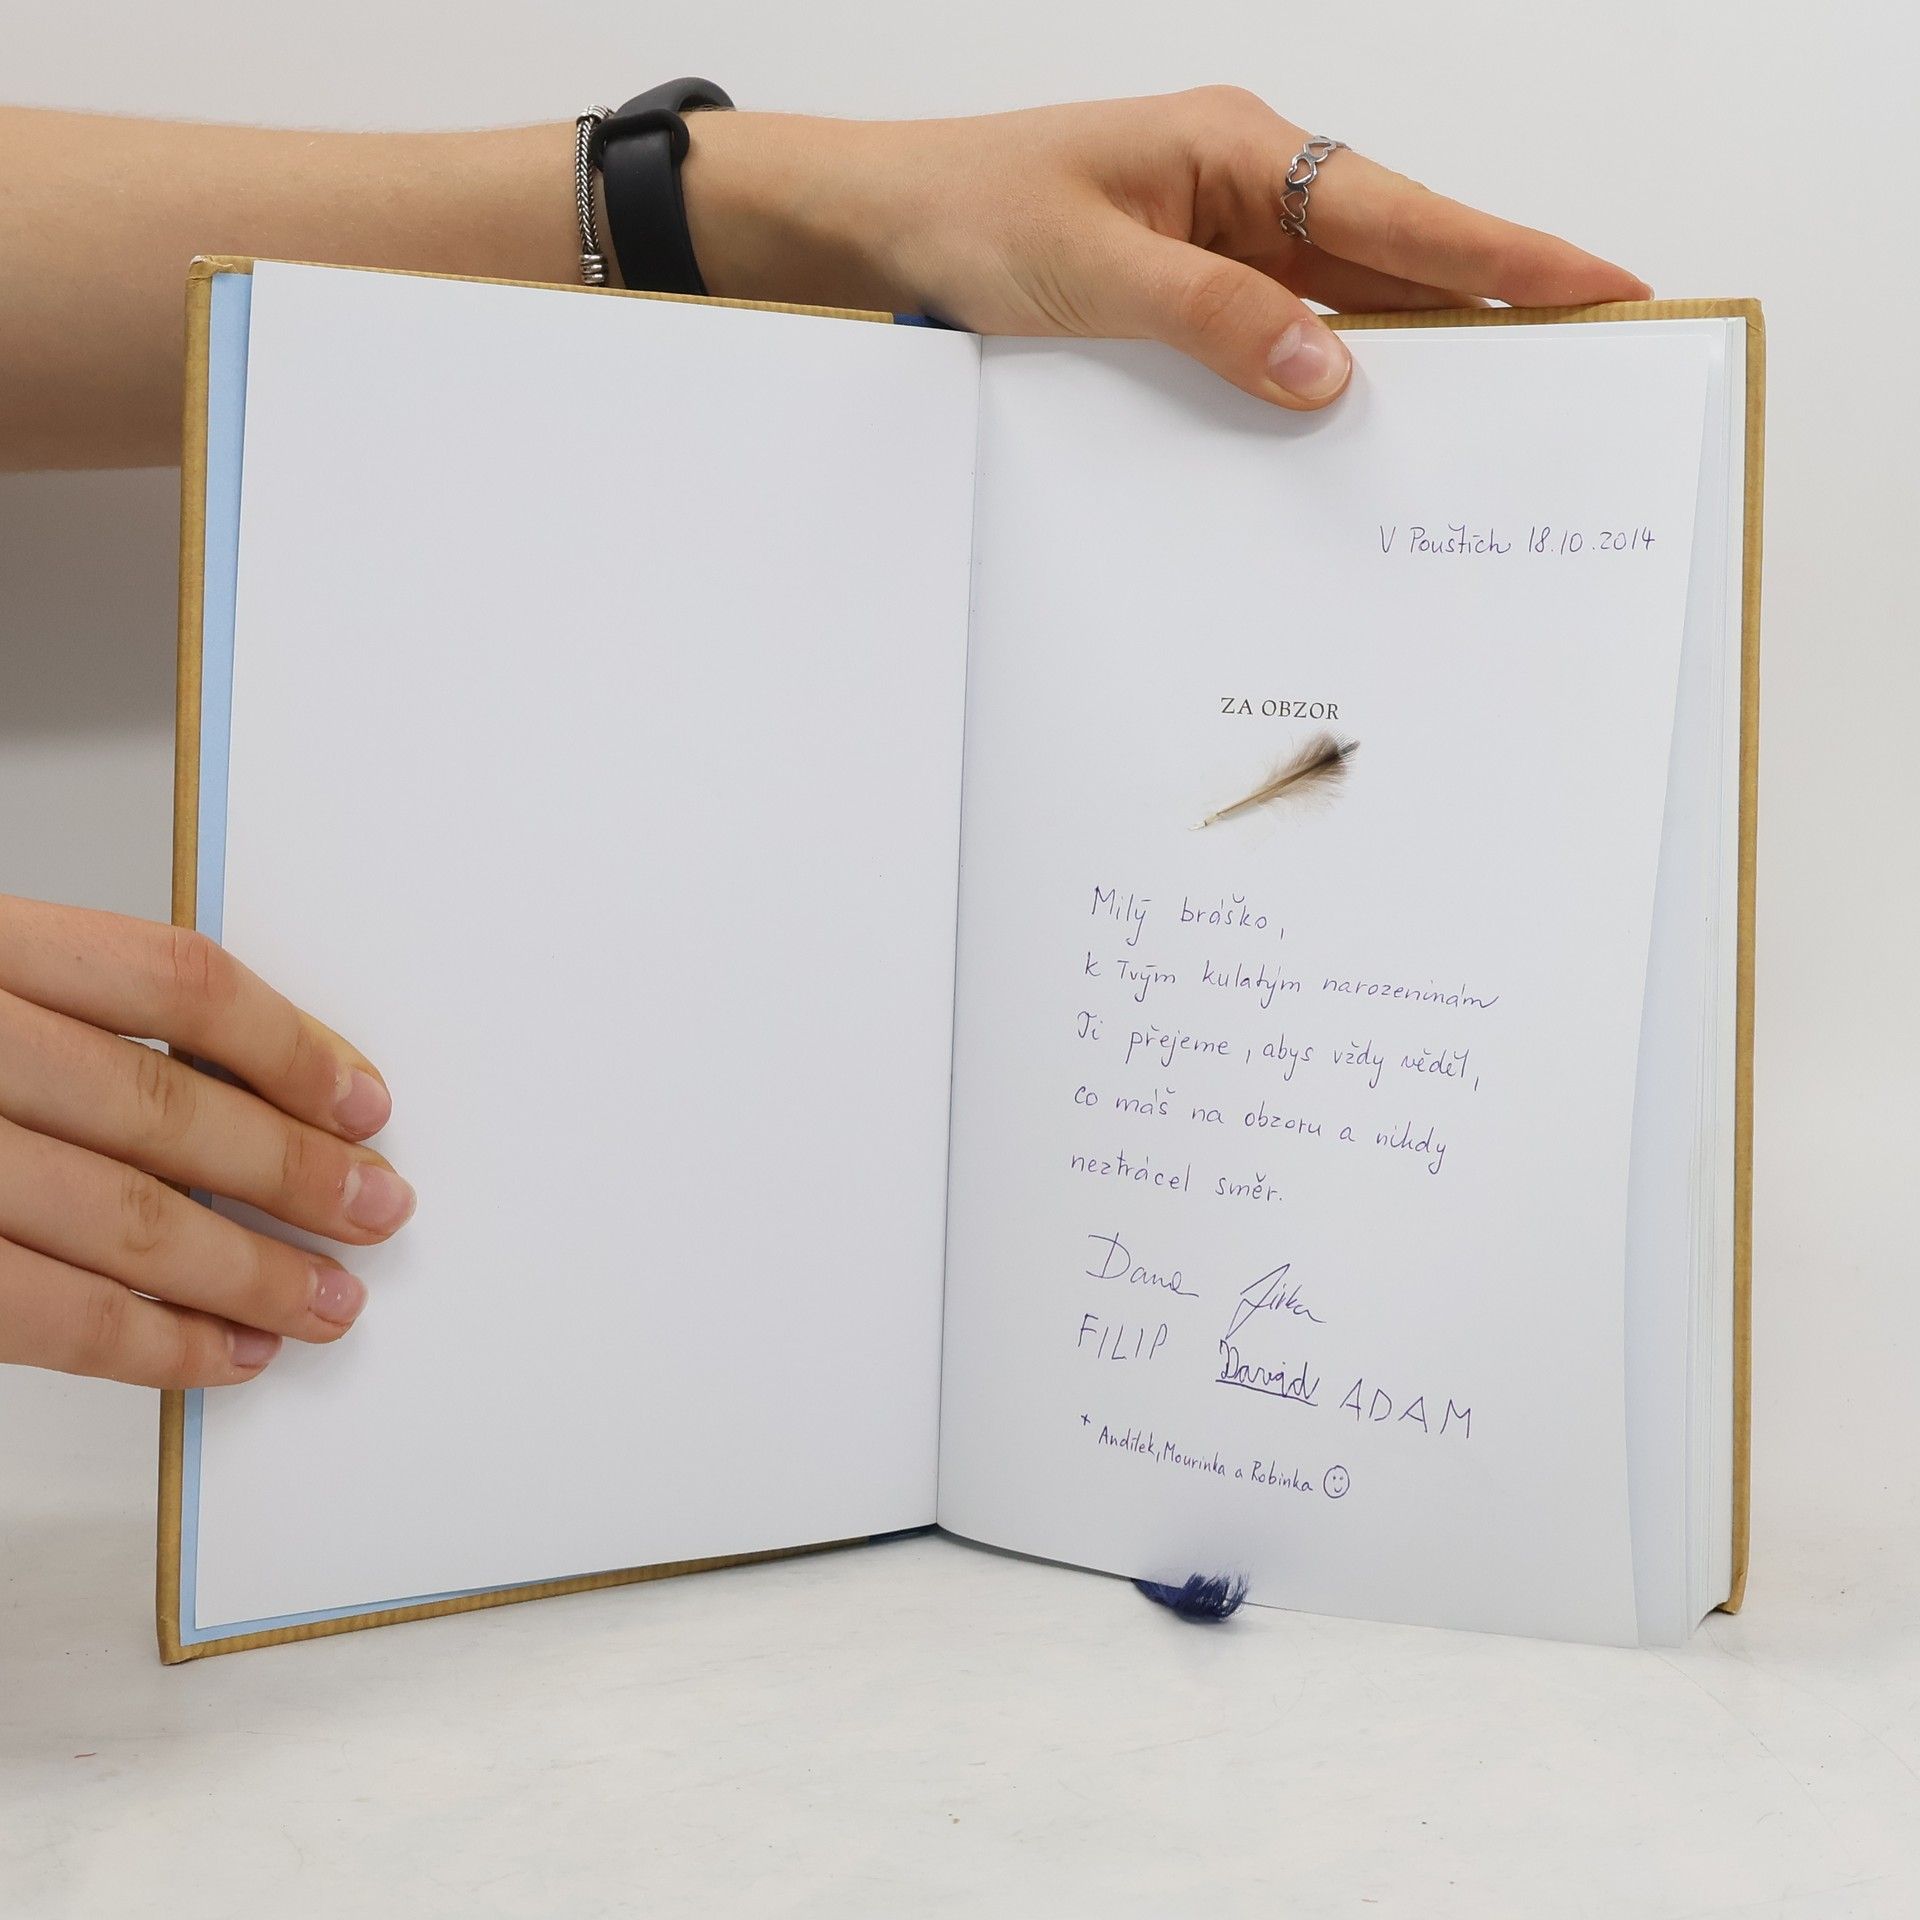 V Pouštích 18.10.2014
ZA OBZOR
Milý bráško,
k Tvým kulatým narozeninám
Ti přejeme, abys vždy věděl,
co máš na obzoru a nikdy
neztrácel směr.
Dana Jirka
FILIP David ADAM
+ Andílek, Mourinka a Robinka ☺